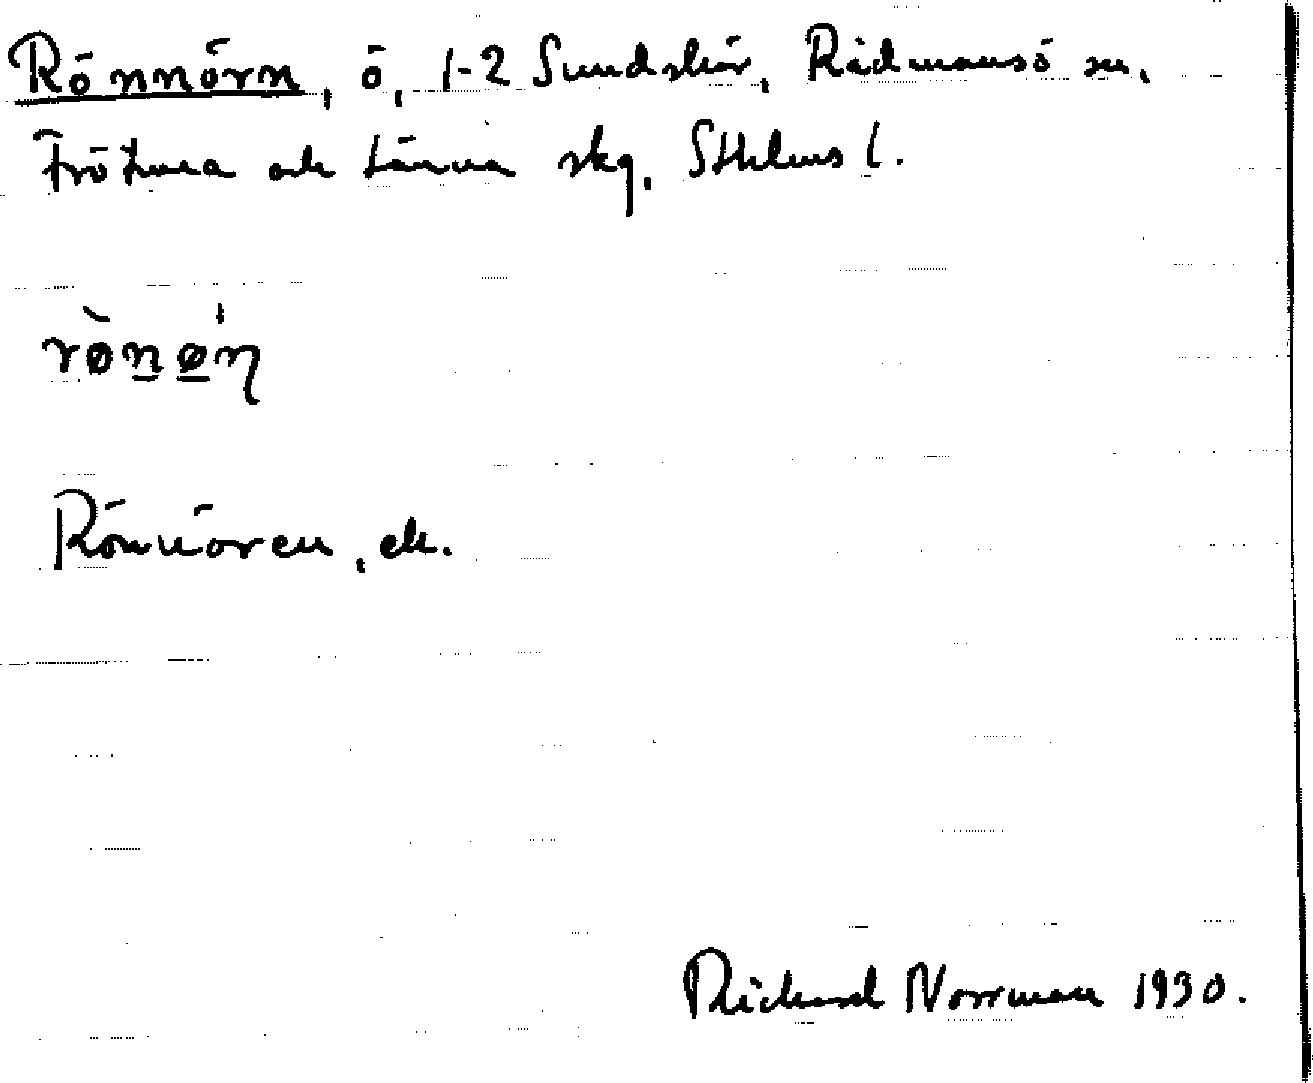 Rönnörn, ö, 1-2 Sundskär, Rådmansö sn.
Frötuna och Länna skg. Sthlms l.
rö̀nø̀ṇ
Rönnören, ek.
Richard Norrman 1930.